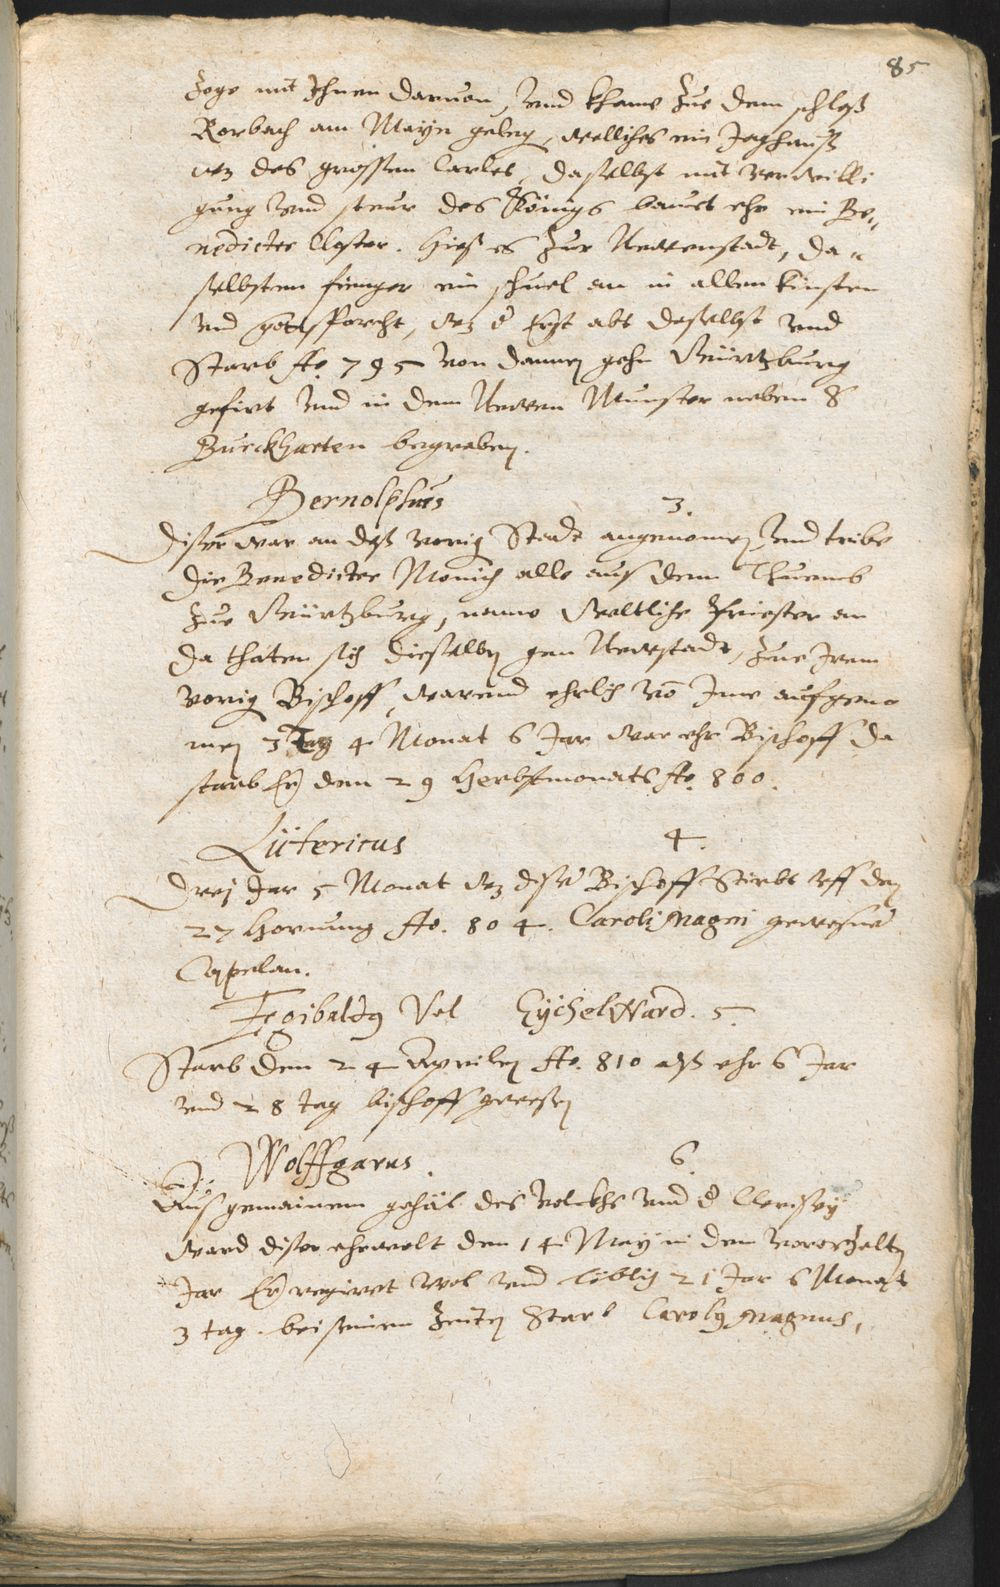 85
Zoge mit Ihnen daruon, vnd khame Zue dem schloß
Rorbach am Mayn geleg, welliches ein Jaghauß
waz des grossen Carles, daselbst mit verwilli
gung vnd steur des Königs bauet ehr ein Be„
nedicter Closter. hieß es Zur Newenstadt, da„
selbsten fienger ein schuel an in allen künsten
vnd gottsforcht, waz d Erst abt daselbst vnd
Starb Ao. 795 von dannen gehn Würtzburg
gefirt vnd in dem Newen Munster neben S
Burckharten begraben.
Bernolphus 3.
Diser war an deß vorig Stadt angenomen, vnd tribe
die Benedicter Monich alle aus dem Thuemb
Zue Würtzburg, name Weltliche Priester an
da thaten sich dieselben gen Newstadt, Zue Jrem
vorig Bischoff, warend ehrlich vo Jme aufgeno
men 3 Tag 4 Monat 6 Jar war ehr Bischoff da
starb Er den 29 Herbstmonats Ao. 800.
Lütericus 4.
Drej Jar 5 Monat waz diser Bischoff Stirbt vff den
27 Hornung Ao. 804. Caroli Magni gewesner
Capelan.
Egibaldus Vel EychelWard. 5.
Starb den 24 Aprilen Ao. 810 alß ehr 6 Jar
vnd 28 tag bischoff gewesen
Wolffgarus. 6.
Aus gemainem gehäl des volckhs vnd d Clerisey
ward diser ehrwelt den 14 May in dem vorerzelten
Jar Er regirret wol vnd löblich 21 Jar 6 Monat
3 tag. bei seinen Zeiten Starb Carolus Magnus,